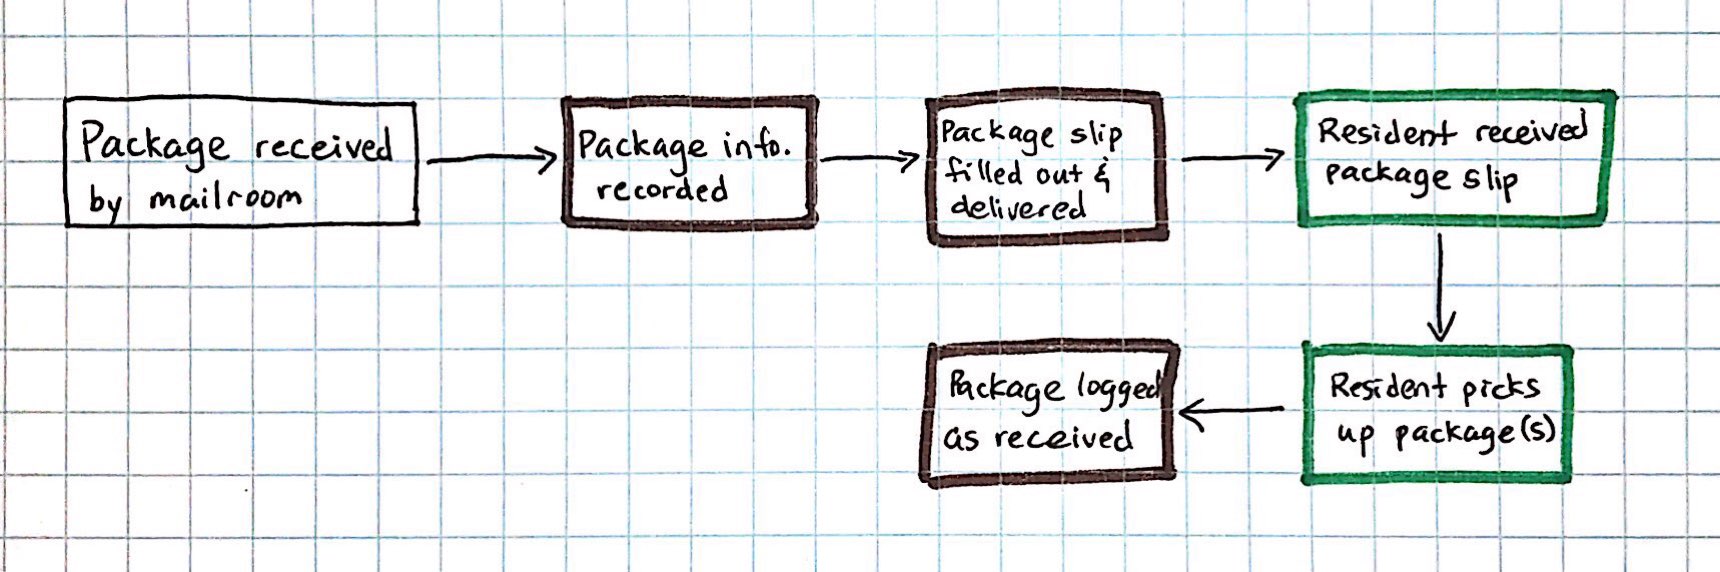 Package received
by mailroom
Package info.
recorded
Package slip
filled out &
delivered
Resident received
package slip
Resident picks
up package(s)
Package logged
as received